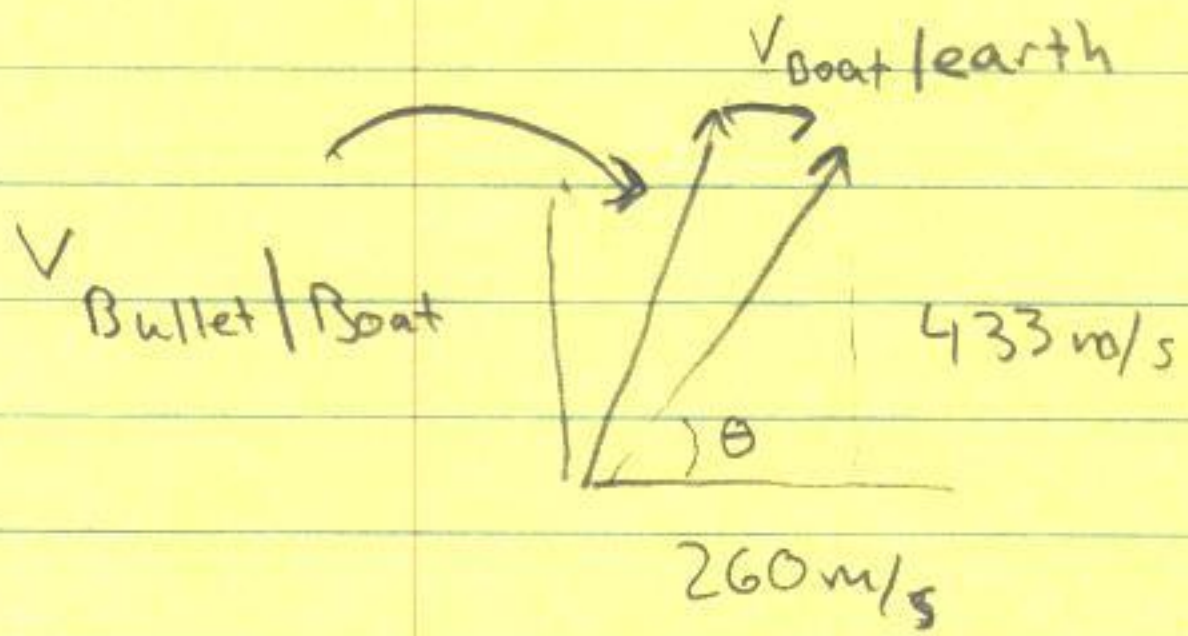 V Boat/earth
V Bullet/Boat
433 m/s
θ
260 m/s